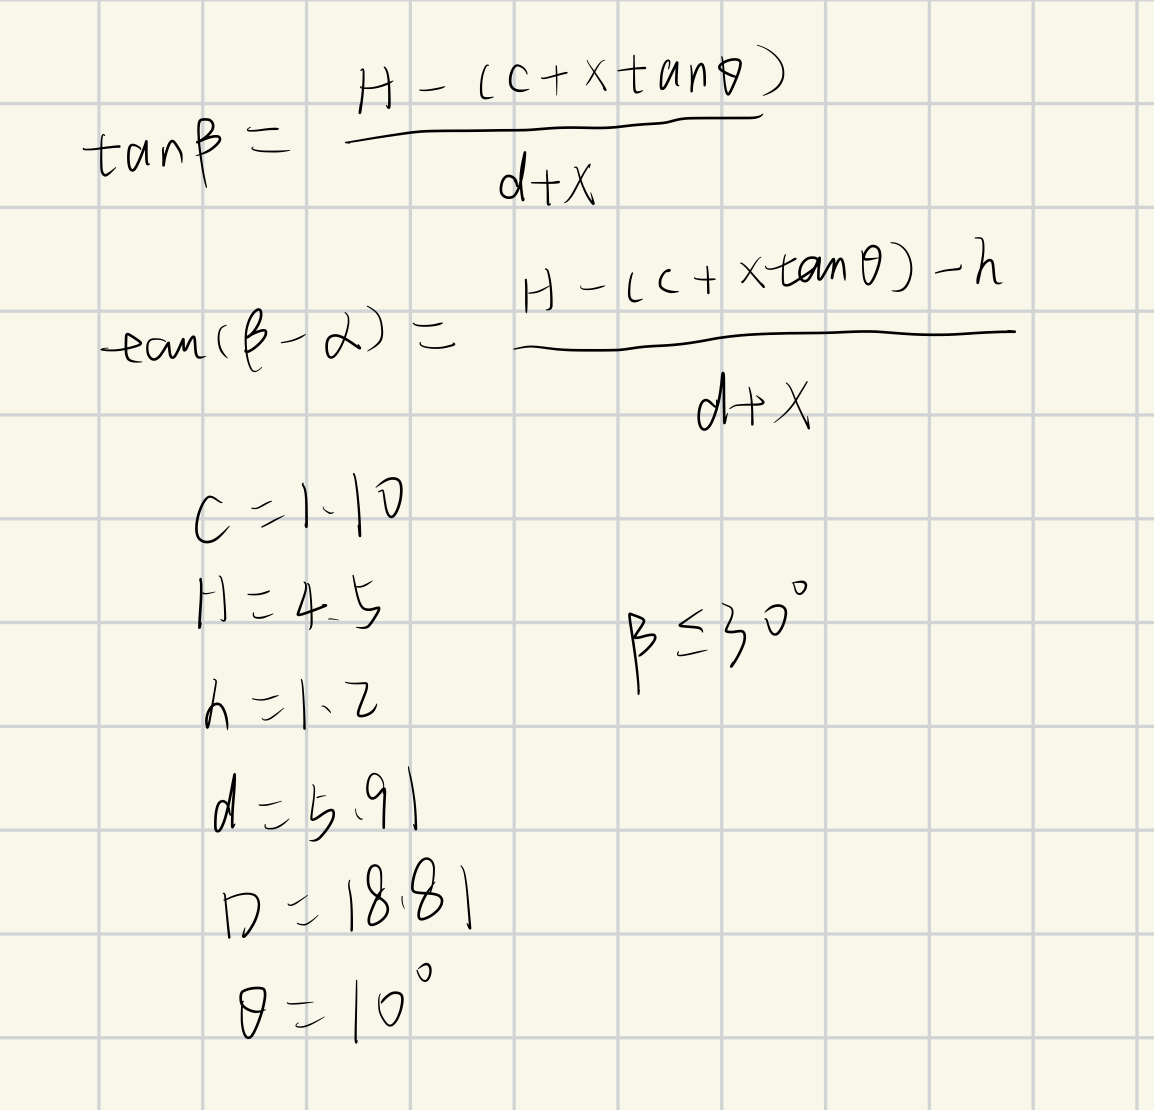 tanβ = (H - (c + x tanθ)) / (d + x)
tan(β - α) = (H - (c + x tanθ) - h) / (d + x)
c = 1.10
H = 4.5
β ≤ 30°
h = 1.2
d = 5.91
D = 18.81
θ = 10°